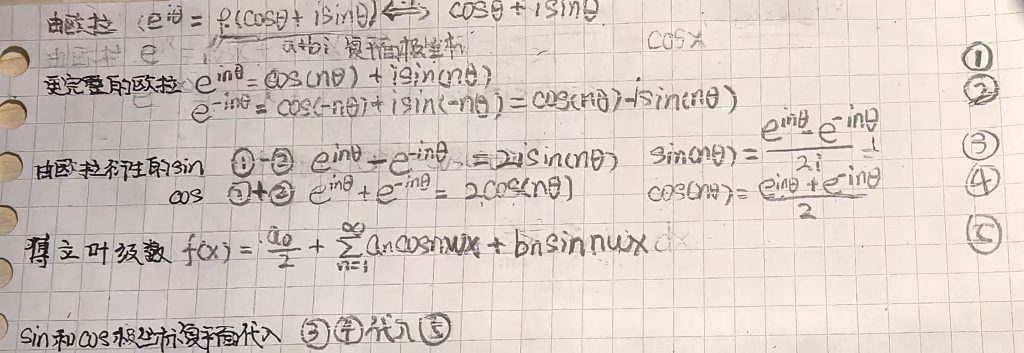 由欧拉 (e^{iθ} = ρ(cosθ + isinθ) ⟺ cosθ + isinθ
a+bi 复平面极坐标 cosx
更完整的欧拉 e^{inθ} = cos(nθ) + isin(nθ) ①
e^{-inθ} = cos(-nθ) + isin(-nθ) = cos(nθ) - isin(nθ) ②
由欧拉衍生的sin ①-② e^{inθ} - e^{-inθ} = 2isin(nθ) sin(nθ) = \frac{e^{inθ} - e^{-inθ}}{2i} ③
cos ①+② e^{inθ} + e^{-inθ} = 2cos(nθ) cos(nθ) = \frac{e^{inθ} + e^{-inθ}}{2} ④
傅立叶级数 f(x) = \frac{a_0}{2} + \sum_{n=1}^{∞} a_n cosnωx + b_n sinnωx dx ⑤
sin和cos极坐标复平面代入 ③④代入⑤